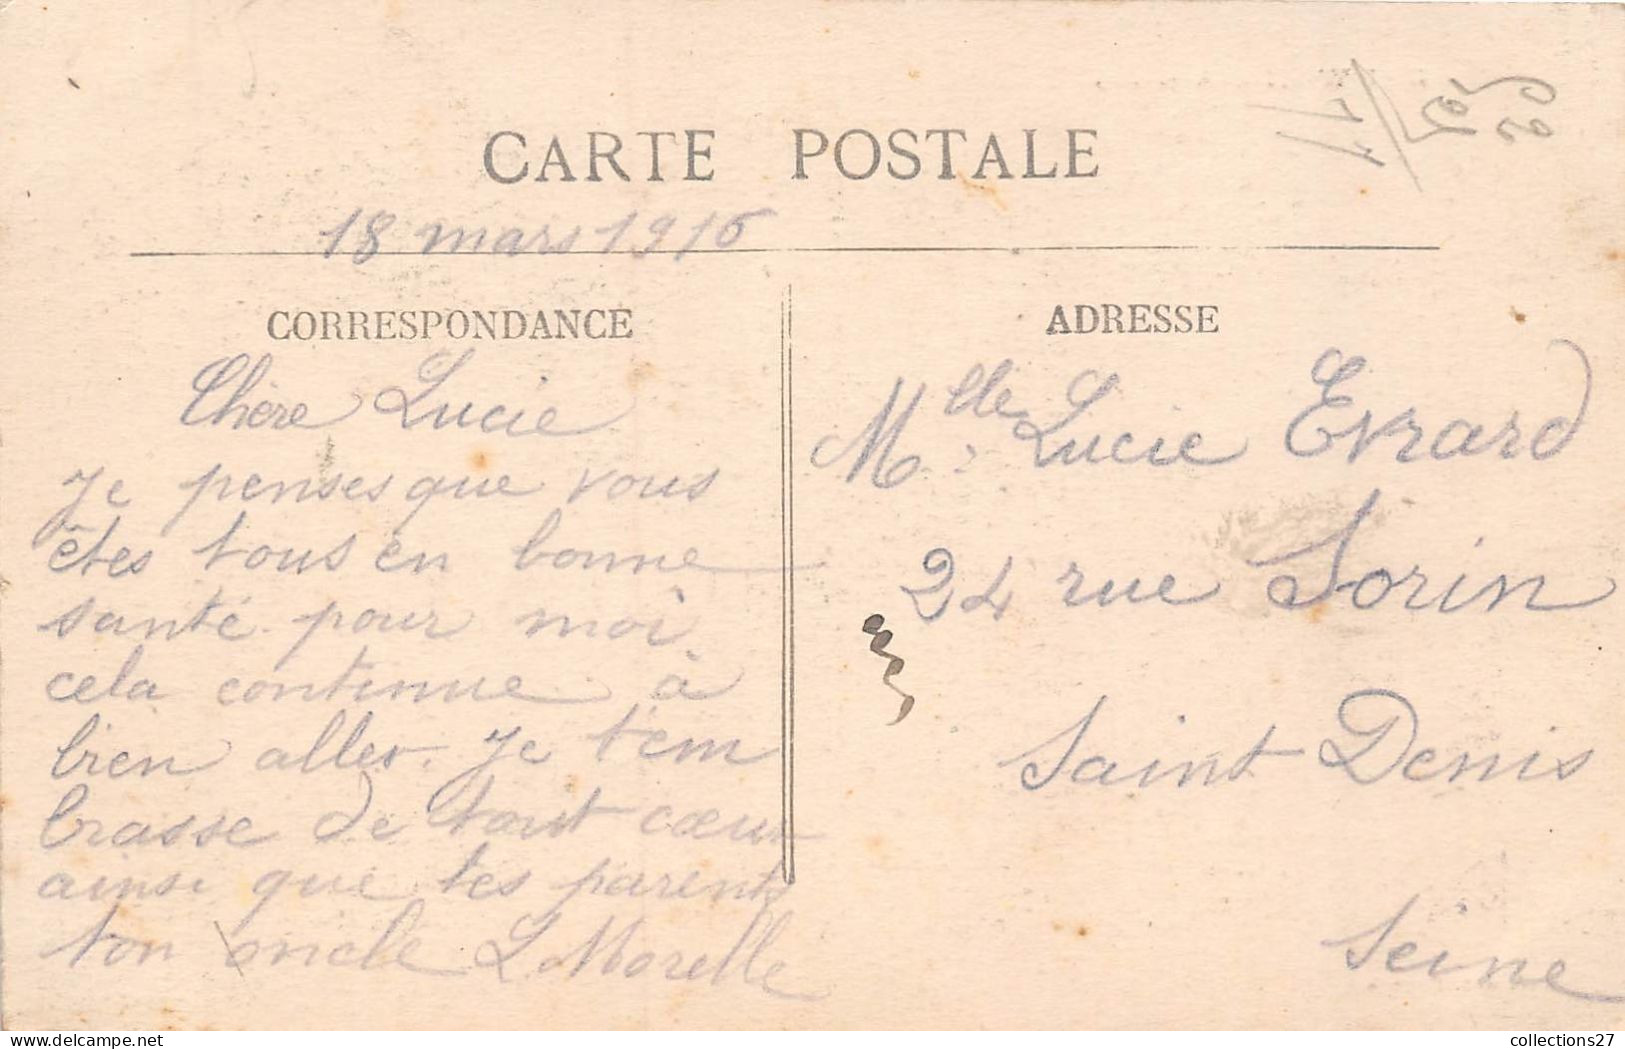 CARTE POSTALE
18 mars 1916
CORRESPONDANCE
Chère Lucie
Je penses que vous
êtes tous en bonne
santé. pour moi
cela continue à
bien aller. Je t'em
brasse de tout cœur
ainsi que tes parents
ton oncle L. Morelle
ADRESSE
Mlle Lucie Evrard
24 rue Sorin
Saint Denis
Seine
collections27